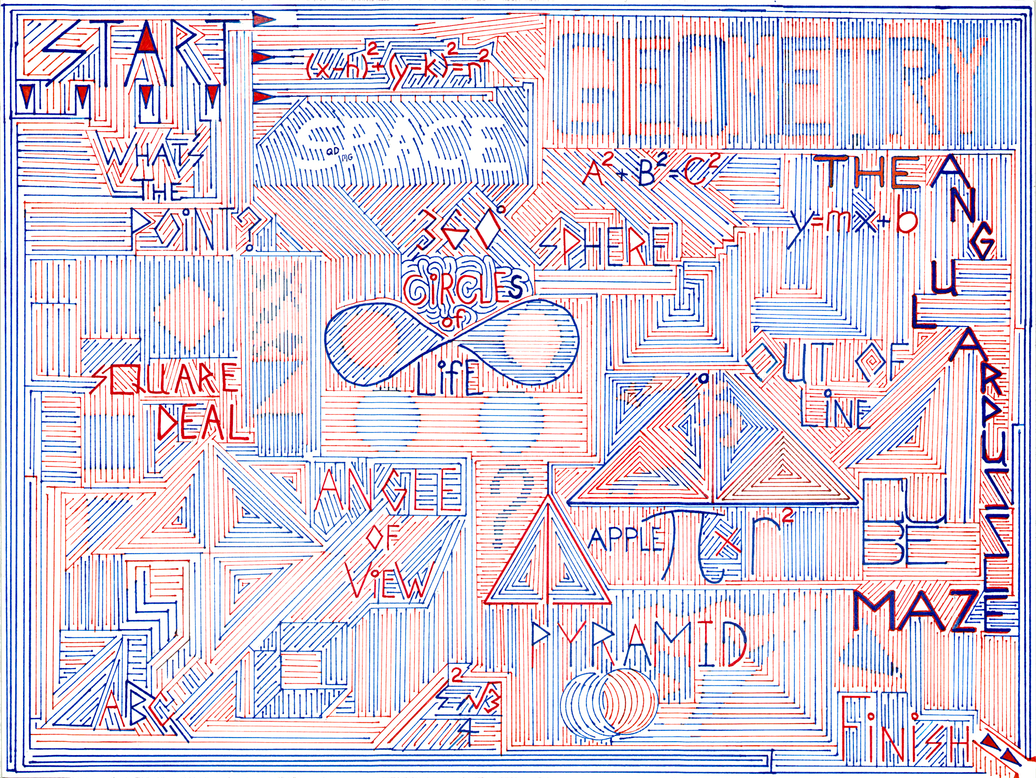 START
(x-h)²+(y-k)²=r²
GEOMETRY
SPACE
WHATS
THE
POiNT?
A²+B²=C²
THE ANGULARDUSSLE MAZE
y=mx+b
360°
SPHERE
CiRCLES
of
LifE
SQUARE
DEAL
OUT OF
LiNE
ANGLE
OF
ViEW
?
APPLE π x r²
BE
PYRAMiD
ABC
2²√3
4
FiNiSH